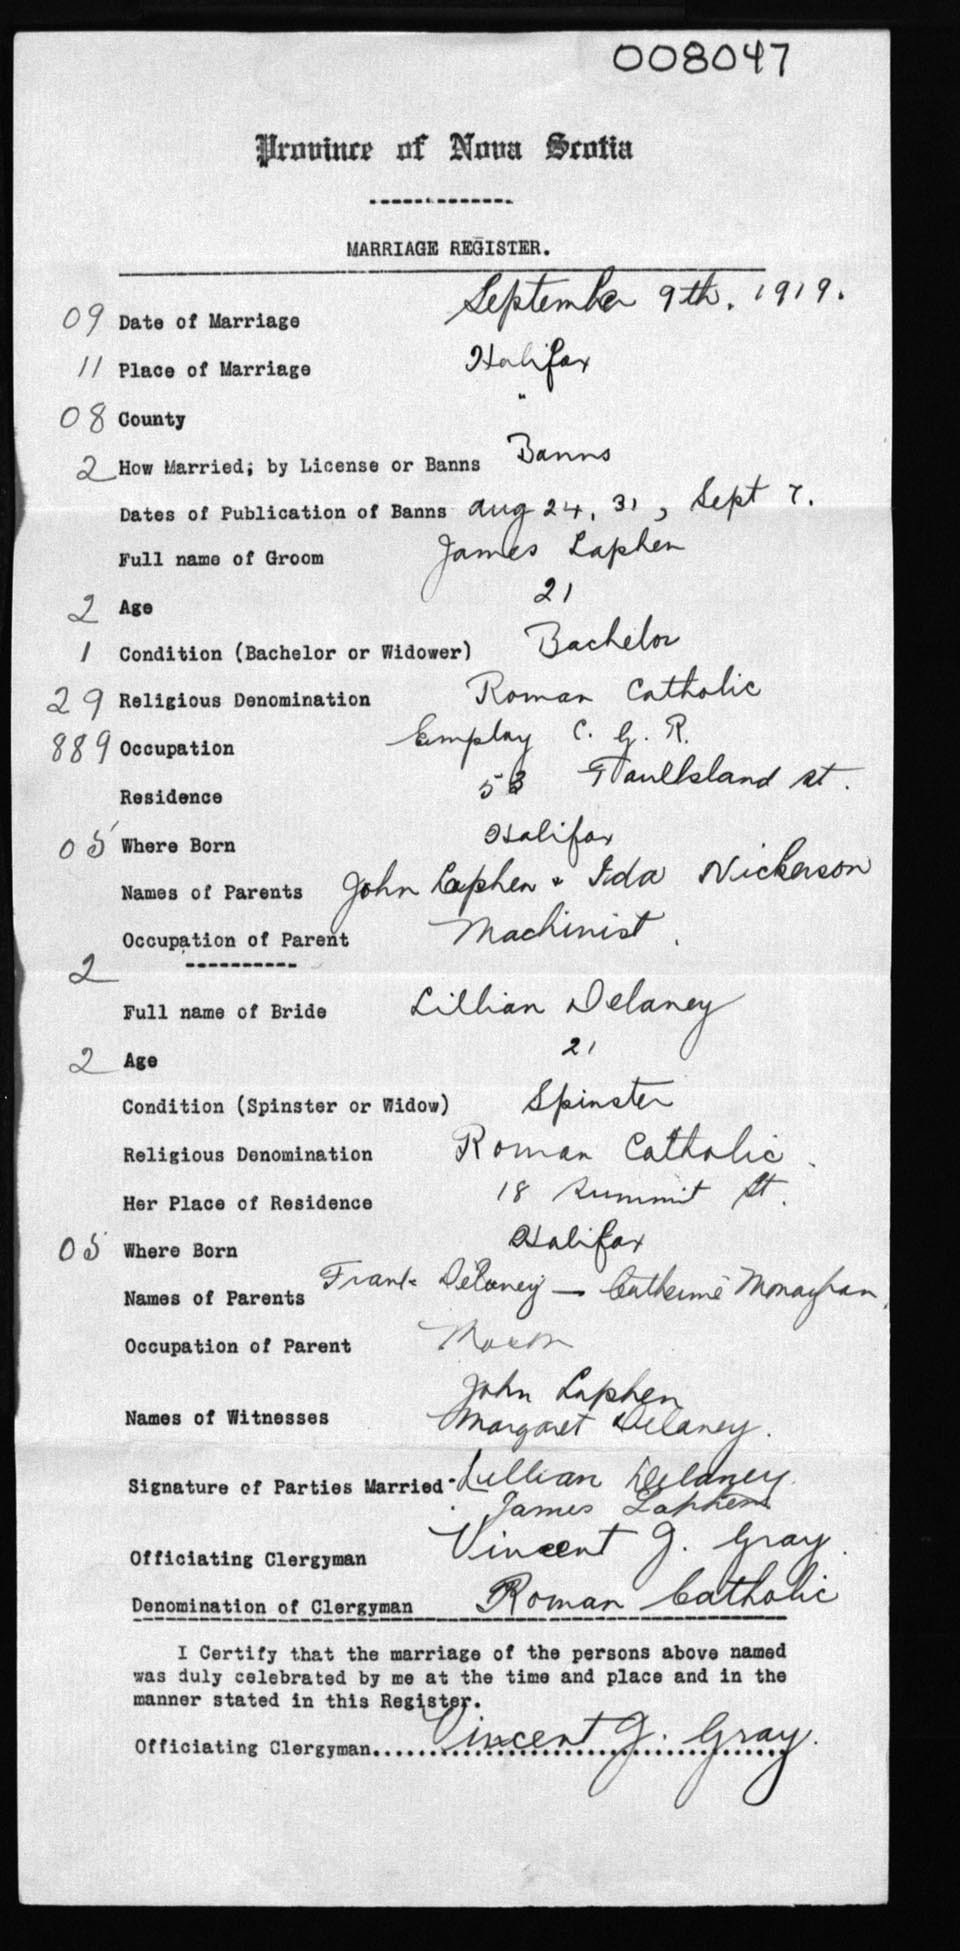 008047
Province of Nova Scotia
MARRIAGE REGISTER.
09 Date of Marriage September 9th. 1919.
11 Place of Marriage Halifax
08 County "
2 How Married; by License or Banns Banns
Dates of Publication of Banns Aug 24, 31, Sept 7.
Full name of Groom James Laphen
2 Age 21
1 Condition (Bachelor or Widower) Bachelor
29 Religious Denomination Roman Catholic
889 Occupation Employ C. G. R.
Residence 53 Faulkland St.
05 Where Born Halifax
Names of Parents John Laphen & Ida Nickerson
Occupation of Parent Machinist.
2
Full name of Bride Lillian Delaney
2 Age 21
Condition (Spinster or Widow) Spinster
Religious Denomination Roman Catholic.
Her Place of Residence 18 Summit St.
05 Where Born Halifax
Names of Parents Frank Delaney — Catherine Monaghan.
Occupation of Parent Mason
John Laphen
Names of Witnesses Margaret Delaney.
Signature of Parties Married Lillian Delaney
James Laphen
Officiating Clergyman Vincent J. Gray.
Denomination of Clergyman Roman Catholic
I Certify that the marriage of the persons above named
was duly celebrated by me at the time and place and in the
manner stated in this Register.
Officiating Clergyman.... Vincent J. Gray.